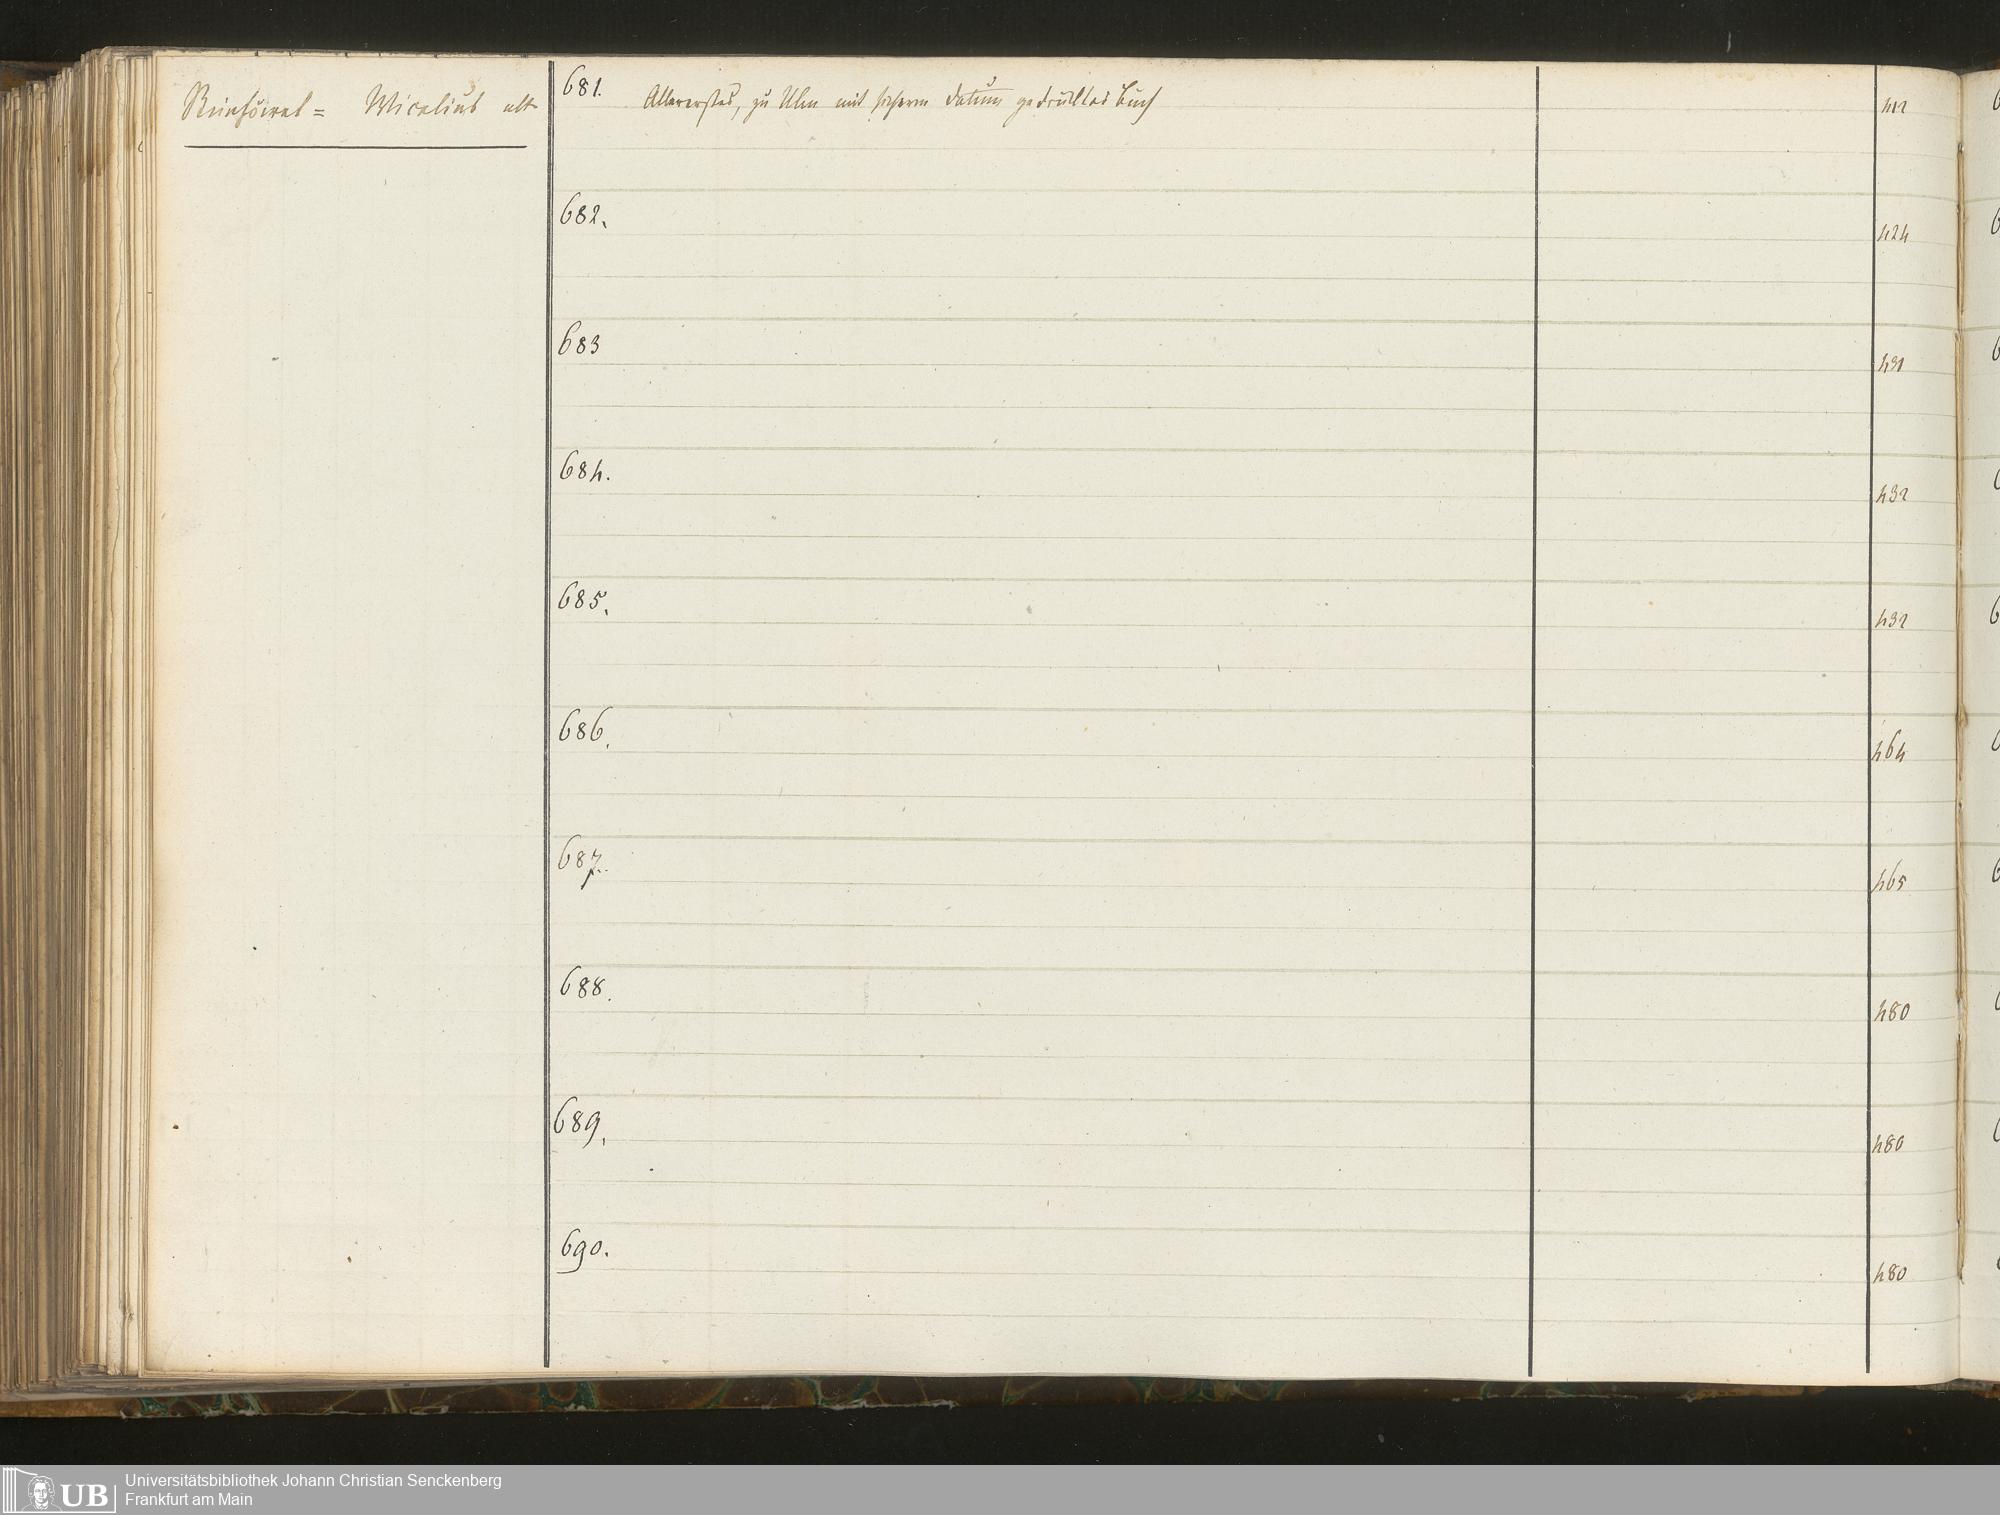 681. Allererstes, zu Ulm mit sicherm Datum gedrucktes Buch 412
682. 424
683 431
684. 432
685. 432
686. 464
687. 465
688. 480
689. 480
690. 480
UB
Universitätsbibliothek Johann Christian Senckenberg
Frankfurt am Main